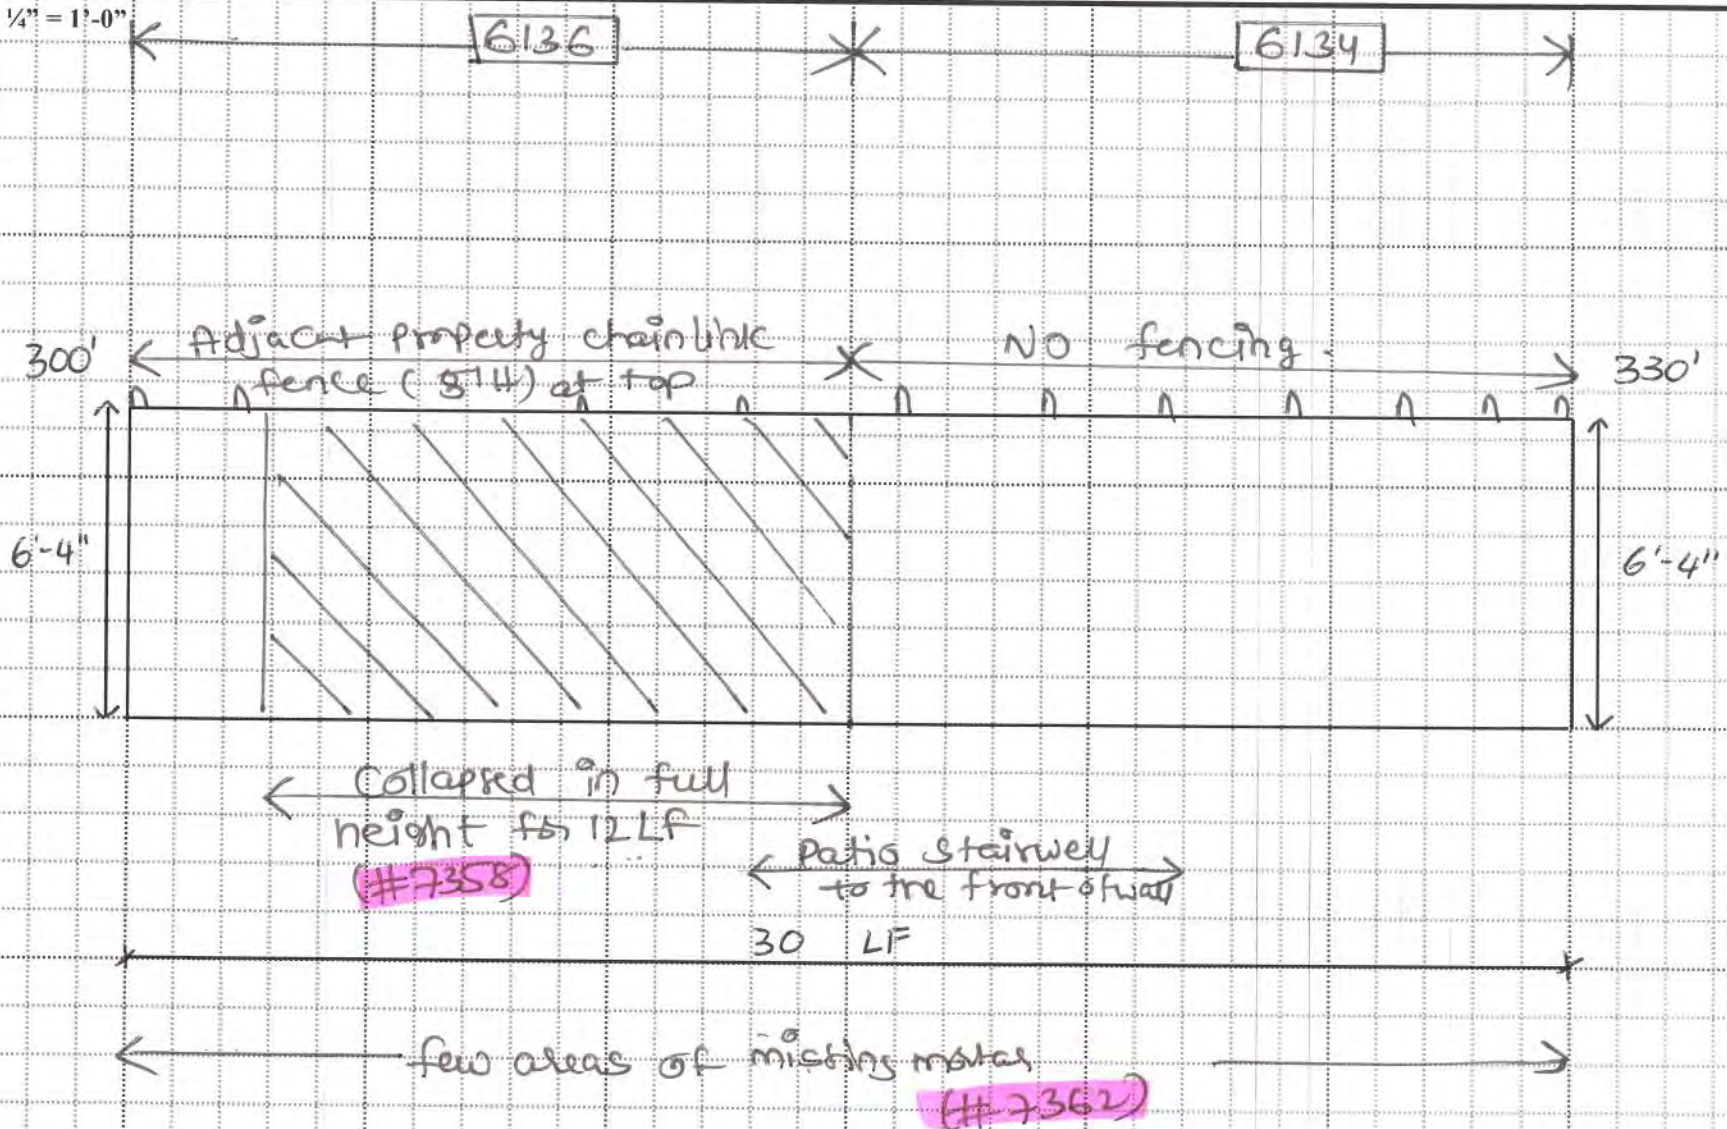 ¼” = 1’-0”
6136
6134
Adjacent property chainlink
fence (5'H) at top
No fencing.
300'
330'
6'-4"
6'-4"
Collapsed in full
height for 12 LF
(#7358)
Patio stairwell
to the front of wall
30 LF
few areas of missing mortar
(#7362)